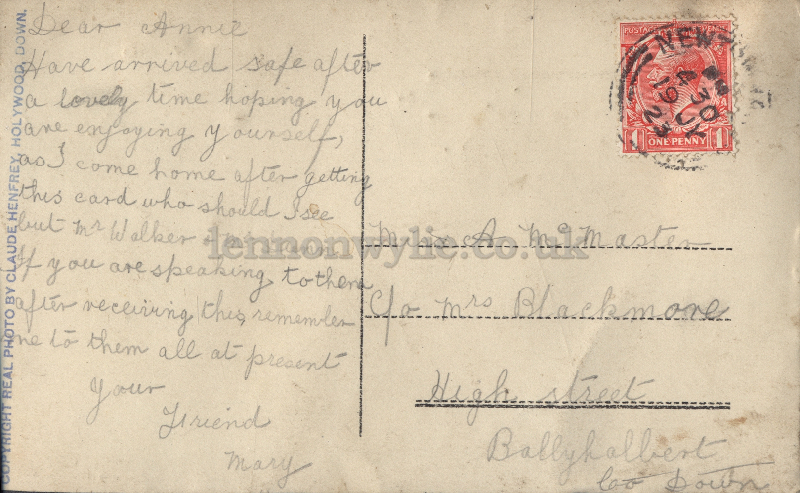 Dear Annie
Have arrived safe after
a lovely time hoping you
are enjoying yourself,
as I come home after getting
this card who should I see
but Mr Walker
If you are speaking to them
after receiving this, remember
me to them all at present
Your
Friend
Mary
COPYRIGHT REAL PHOTO BY CLAUDE HENFREY, HOLYWOOD, DOWN.
POSTAGE
1 ONE PENNY 1
4 30 PM
19 JY
23
lennonwylie.co.uk
A. McMaster
C/o Mrs Blackmore
High street
Ballyhalbert
Co Down